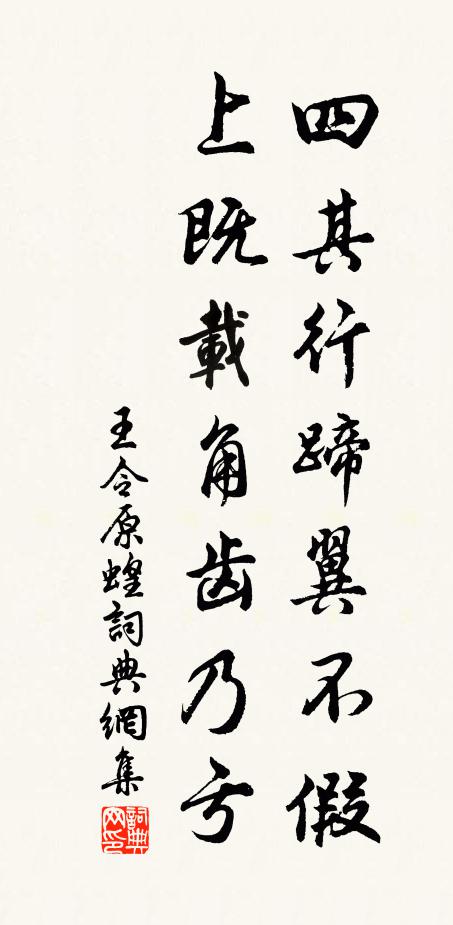 四其行蹄翼不假
上既載角齿乃亏
王令原蝗詞典網集
詞典
网印